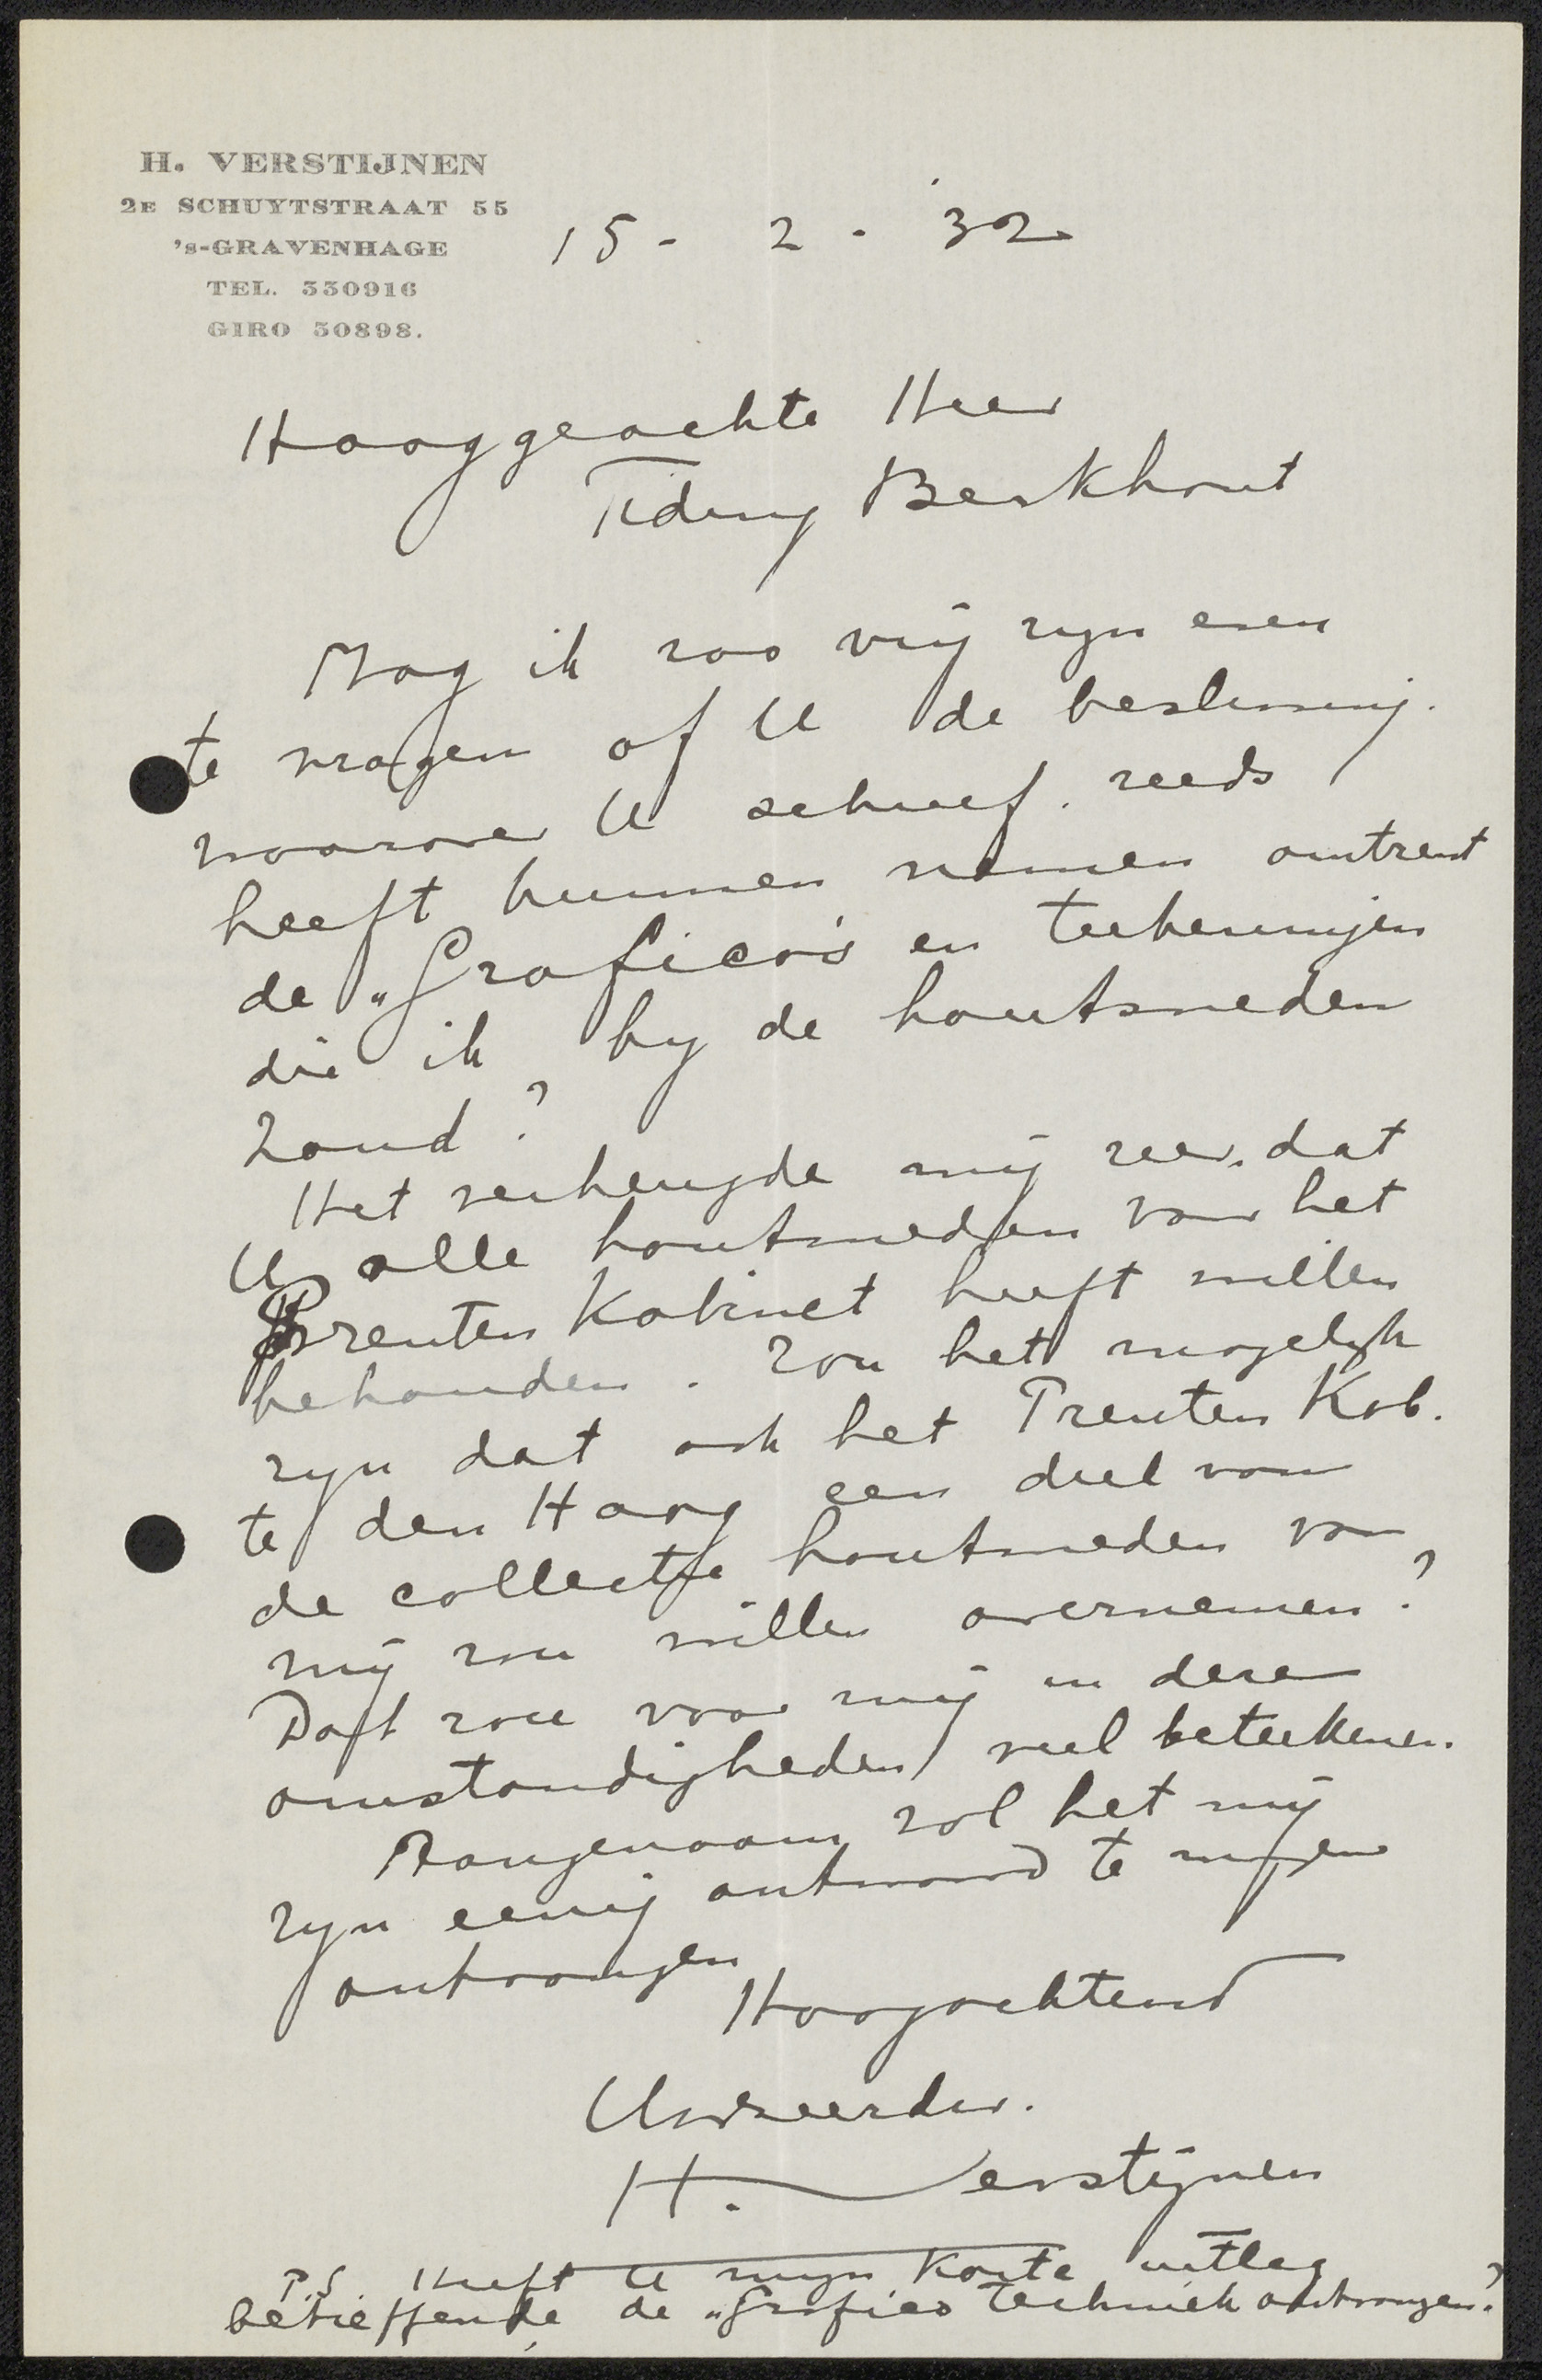 H. VERSTIJNEN
2E SCHUYTSTRAAT 55
's-GRAVENHAGE
TEL. 330916
GIRO 50898.
15 - 2 - 32
Hooggeachte Heer
Tideng Berkhout
Mag ik zoo vrij zijn even
te vragen of U de beslissing.
waarover U schreef. reeds
heeft kunnen nemen omtrent
de „Grafico's en teekeningen
die ik by de houtsneden
zond?
Het verheugde mij zeer. dat
U alle houtsneden voor het
Prenten Kabinet heeft willen
behouden. Zou het mogelijk
zijn dat ook het Prenten Kab.
te den Haag een deel van
de collectie houtsneden van
mij zou willen overnemen?
Dat zou voor mij in deze
omstandigheden veel beteekenen.
Aangenaam zal het mij
zijn eenig antwoord te mogen
ontvangen
Hoogachtend
Uwzeerdw.
H. Verstijnen
P.S. Heeft U mijn korte uitleg
betreffende de „Grafico techniek ontvangen?